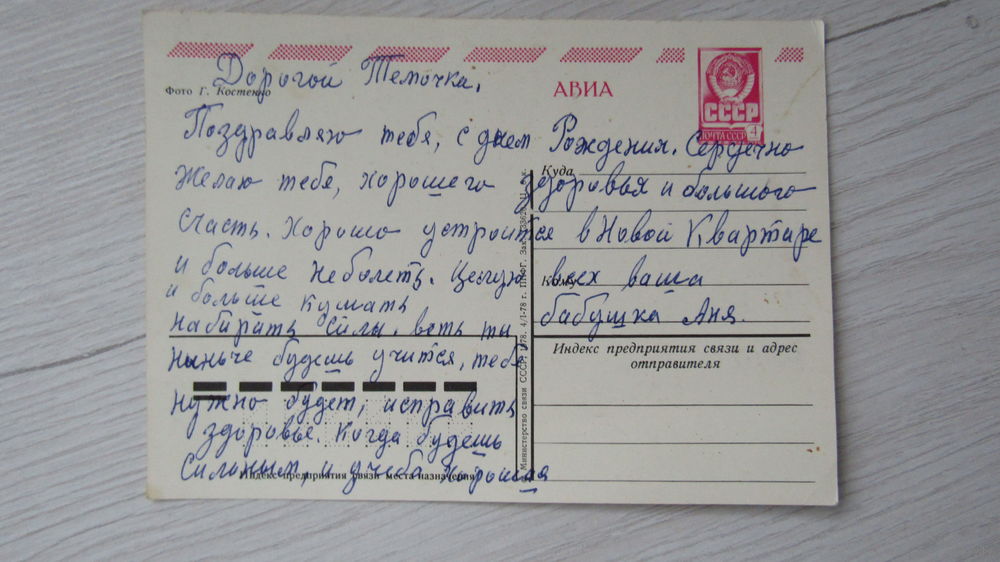 Дорогой Темочка.
Фото Г. Костенко
АВИА
СССР
ПОЧТА СССР 4
Поздравляю тебя, с днем Рождения. Сердечно
Куда
желаю тебе, хорошего здоровья и большого
счасть. хорошо устроится в Новой Квартаре
и больше неболеть. Целую всех ваша
Кому
и больше кушать бабушка Аня.
набирать силы. веть ты
ныньче будешь учится, тебе
Индекс предприятия связи и адрес
отправителя
нужно будет, исправить
здоровье. когда будешь
сильным, и учеба хорошая
Индекс предприятия связи места назначения
Министерство связи СССР, 1978. 4/I-78 г. ППФГ. Зак.